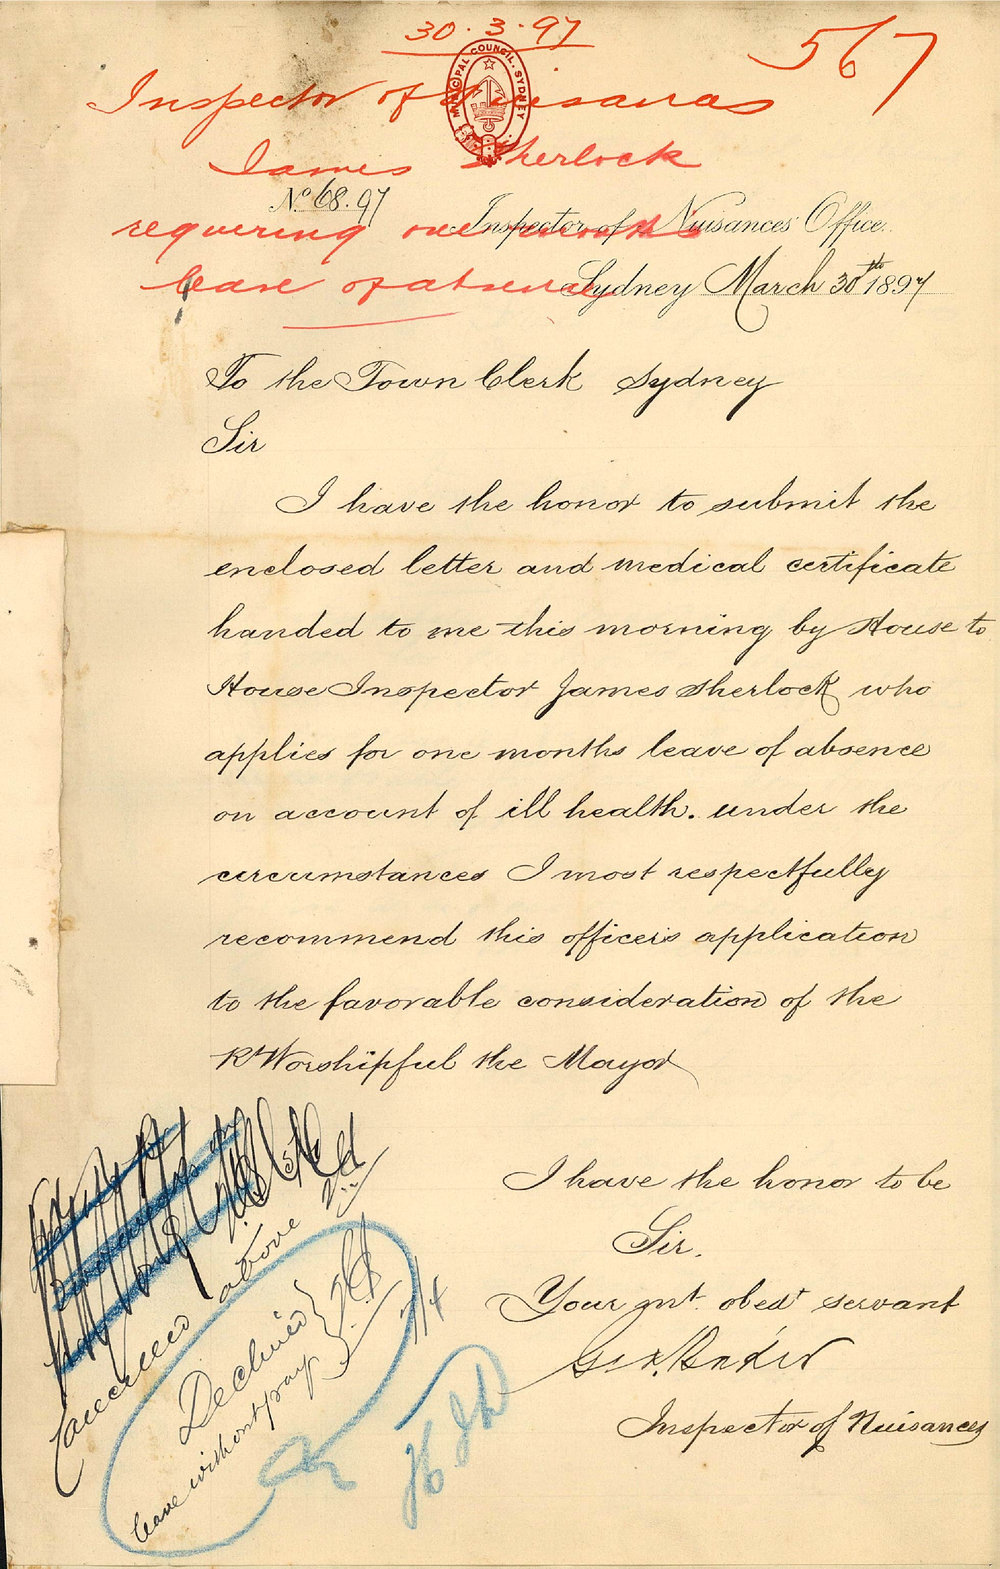 30.3.97
567
MUNICIPAL COUNCIL. SYDNEY
Inspector of Nuisances
James Sherlock
No 68.97
requering one months
Inspector of Nuisances Office.
leave of absence
Sydney March 30th 1897
To the Town Clerk Sydney
Sir
I have the honor to submit the
enclosed letter and medical certificate
handed to me this morning by House to
House Inspector James Sherlock who
applies for one months leave of absence
on account of ill health. under the
circumstances I most respectfully
recommend this officers application
to the favorable consideration of the
Rt Worshipful the Mayor
I have the honor to be
Sir.
Your mt. obedt servant
Inspector of Nuisances
Cancelled above
Declined
leave without pay
7/4